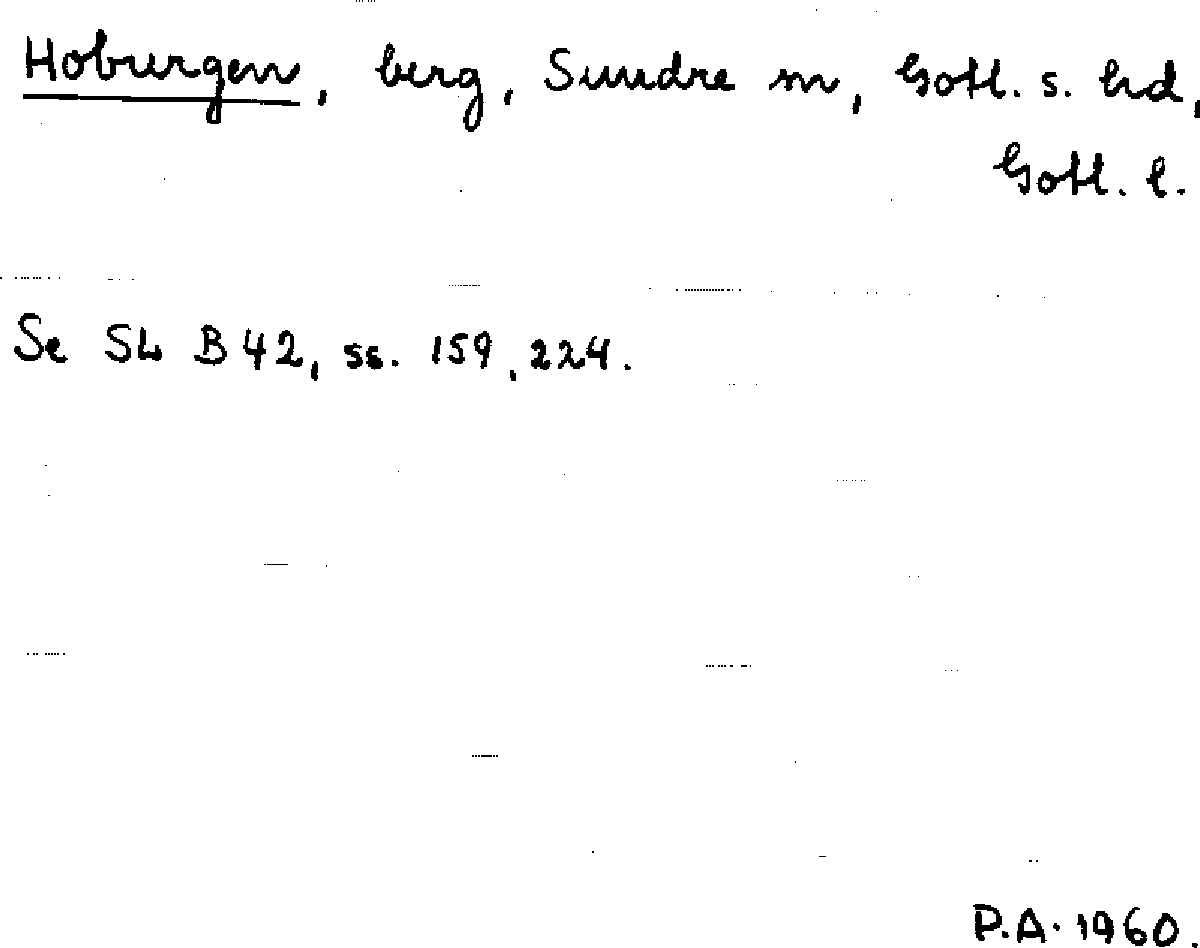 Hoburgen, berg, Sundre sn, Gotl. s. hd,
Gotl. l.
Se SL B 42, ss. 159, 224.
P.A. 1960.